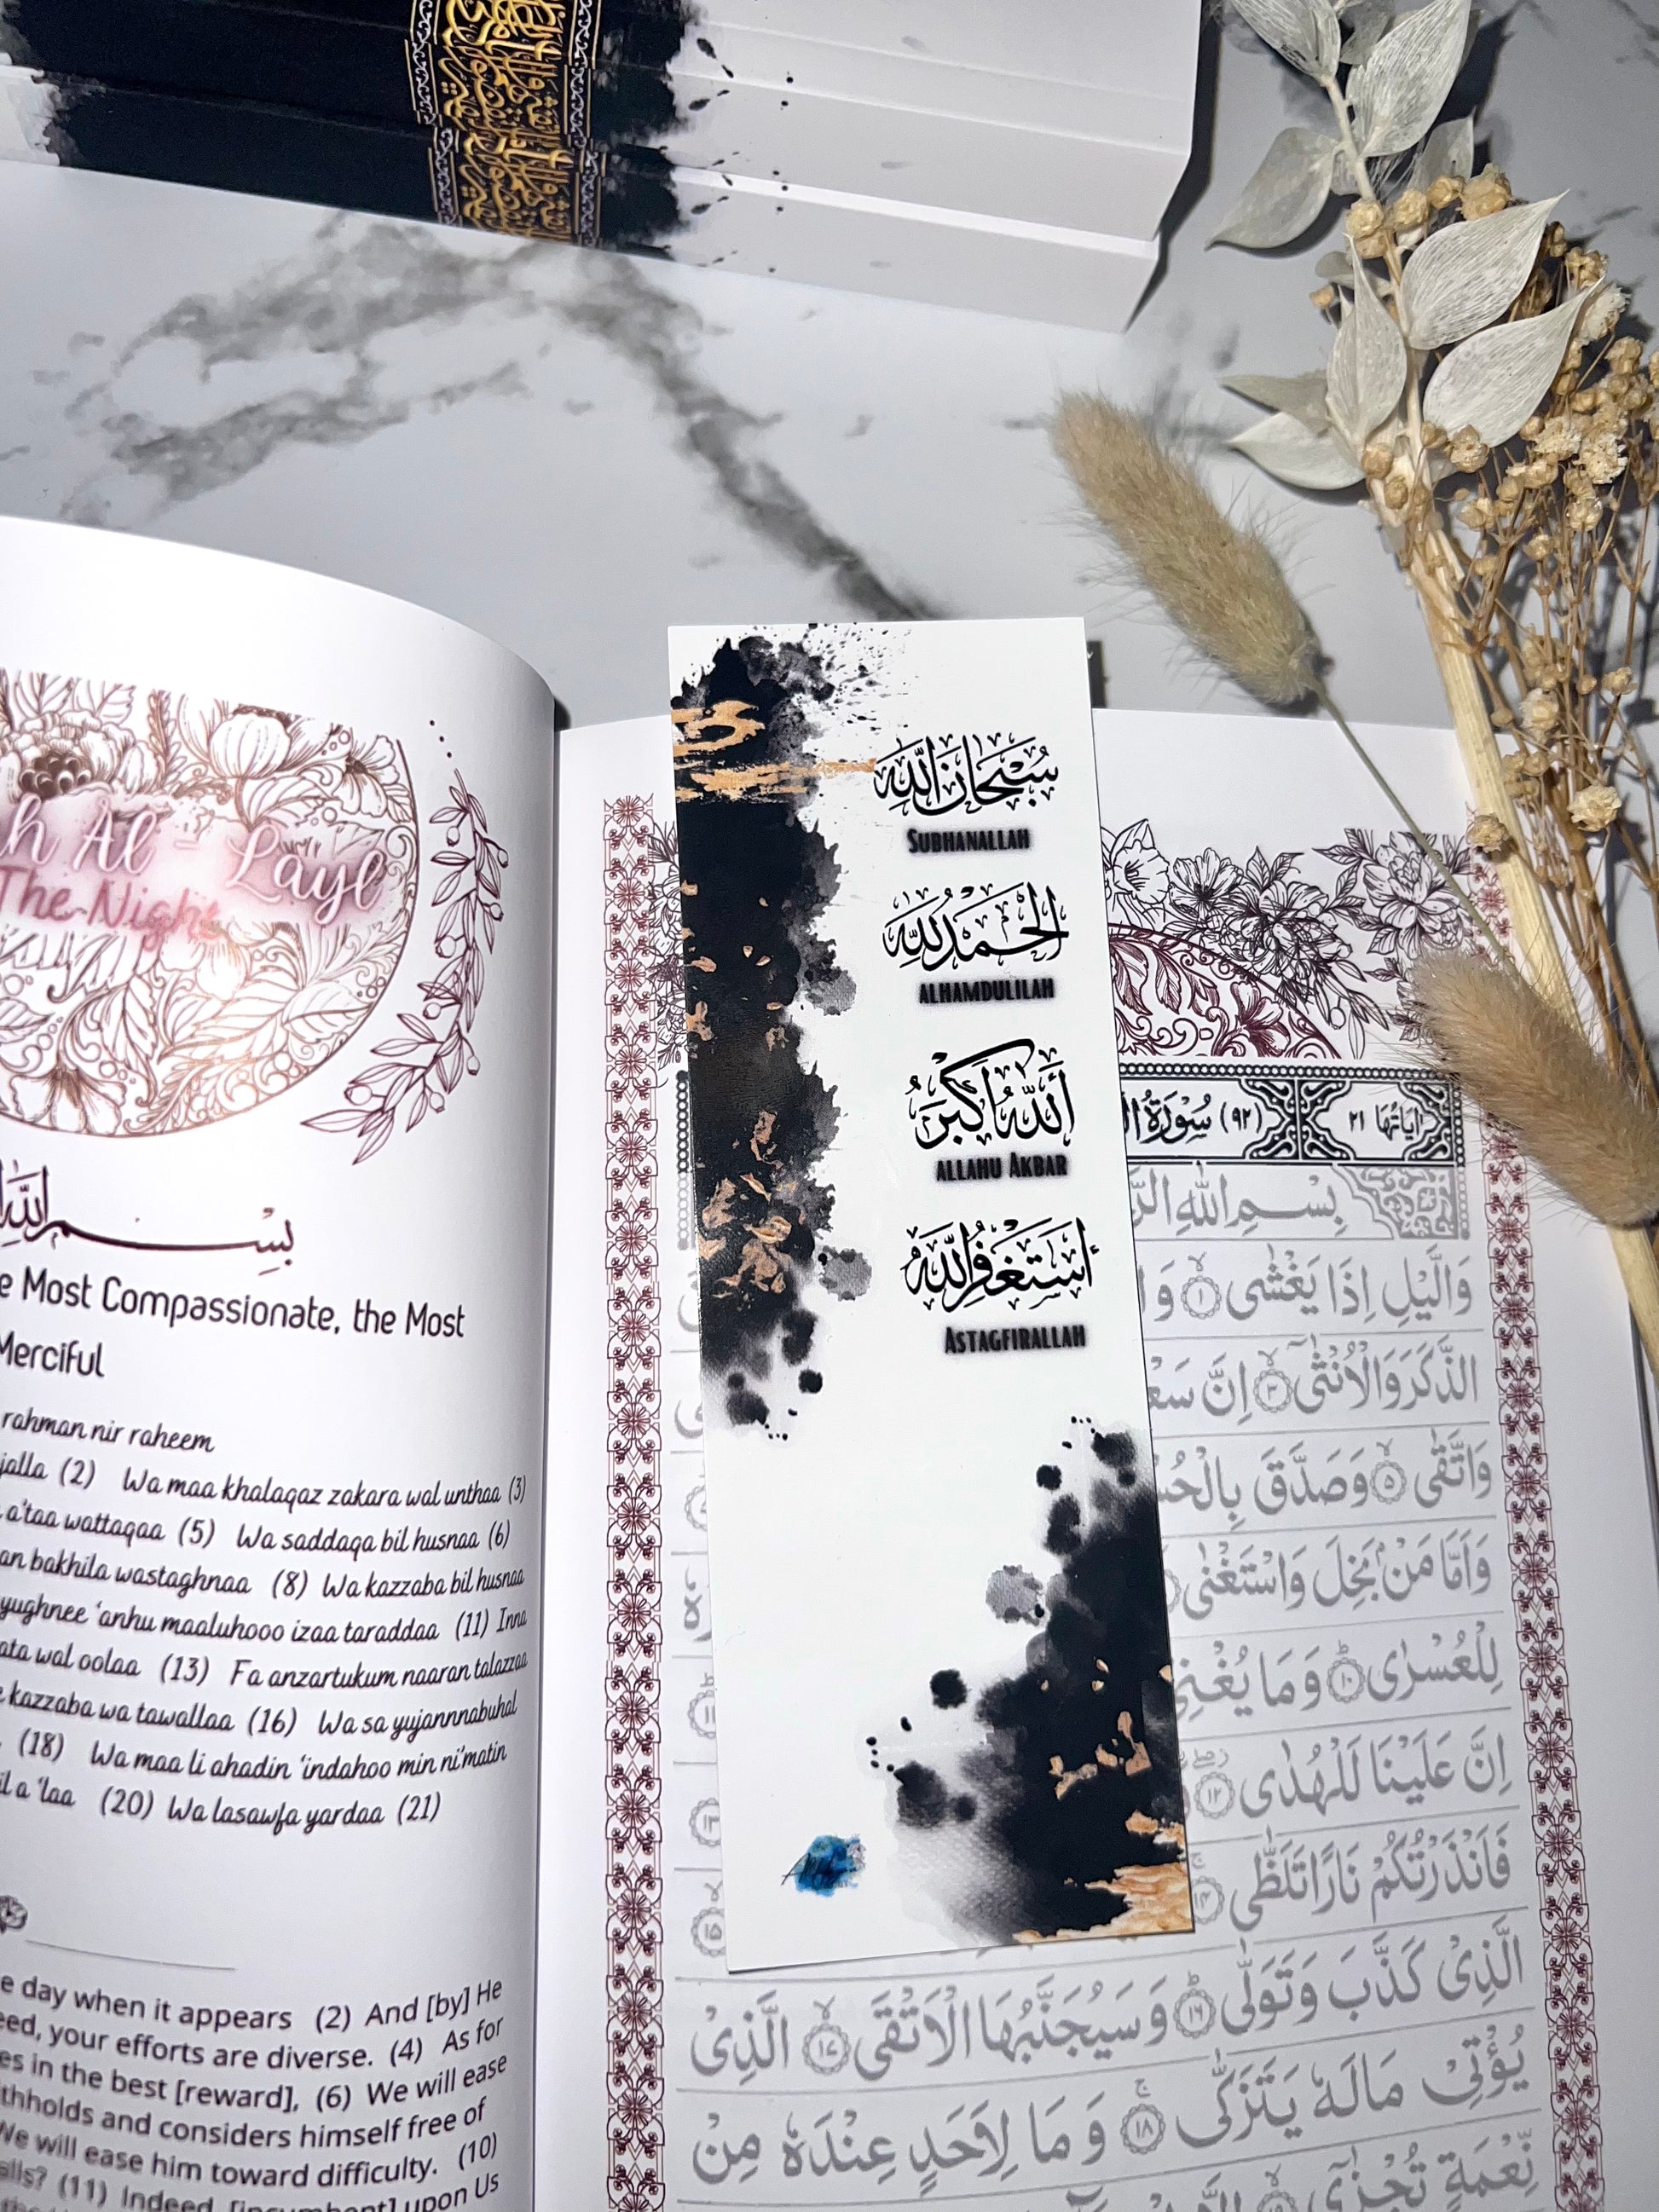 h Al - Layl
The Night
بِسْمِ اللَّهِ
e Most Compassionate, the Most
Merciful
rahman nir raheem
jalla (2) Wa maa khalaqaz zakara wal unthaa (3)
a'taa wattaqaa (5) Wa saddaqa bil husnaa (6)
an bakhila wastaghnaa (8) Wa kazzaba bil husnaa
yughnee 'anhu maaluhooo izaa taraddaa (11) Inna
ata wal oolaa (13) Fa anzartukum naaran talazzaa
kazzaba wa tawallaa (16) Wa sa yujannnabuhal
(18) Wa maa li ahadin 'indahoo min ni'matin
il a 'laa (20) Wa lasawfa yardaa (21)
e day when it appears (2) And [by] He
eed, your efforts are diverse. (4) As for
es in the best [reward], (6) We will ease
thholds and considers himself free of
We will ease him toward difficulty. (10)
alls? (11) Indeed, [incumbent] upon Us
سُبْحَانَ اللَّهِ
SUBHANALLAH
الْحَمْدُ لِلَّهِ
ALHAMDULILAH
اَللَّهُ أَكْبَرُ
ALLAHU AKBAR
أَسْتَغْفِرُ اللَّهَ
ASTAGFIRALLAH
اٰيَاتُهَا ٢١ (٩٢) سُوْرَةُ
بِسْمِ اللّٰهِ
وَالَّيْلِ اِذَا يَغْشٰى ۙ‏﴿۱﴾ وَ
الذَّكَرَ وَالْاُنْثٰٓى ۙ‏﴿۳﴾ اِنَّ
وَاتَّقٰى ۙ‏﴿۵﴾ وَصَدَّقَ
وَاَمَّا مَنْۢ بَخِلَ وَاسْتَغْنٰى
لِلْعُسْرٰى ؕ‏﴿۱۰﴾ وَمَا يُغْنِىْ
اِنَّ عَلَيْنَا لَلْهُدٰى ۖ‏﴿۱۲﴾
فَاَنْذَرْتُكُمْ نَارًا تَلَظّٰى ۚ‏﴿۱۴﴾
الَّذِىْ كَذَّبَ وَتَوَلّٰى ؕ‏﴿۱۶﴾ وَسَيُجَنَّبُهَا الْاَتْقَى ۙ‏﴿۱۷﴾ الَّذِىْ
يُؤْتِىْ مَالَهٗ يَتَزَكّٰى ۚ‏﴿۱۸﴾ وَمَا لِاَحَدٍ عِنْدَهٗ مِنْ
نِّعْمَةٍ تُجْزٰٓى